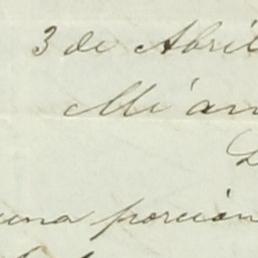 3 de Abril
Mi am
una porción